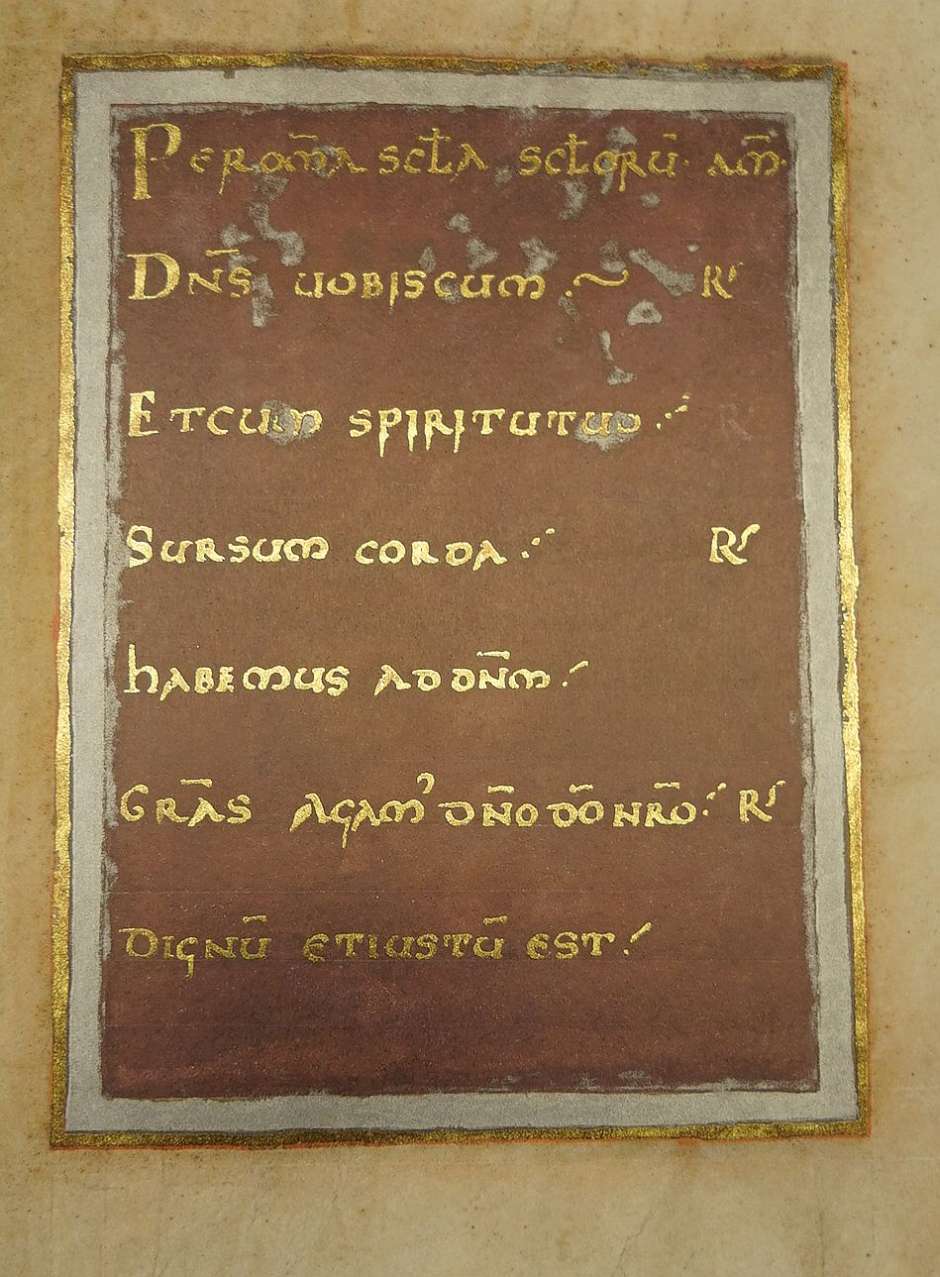 Perom̄a scła scłorū· am̄·
Dn̄s uobiscum .~ R
Etcum spiritutuo ·: R
Sursum corda ·: R
habemus ad dn̄m ·/
Grās agam' dn̄o dō nr̄o ·: R
Dignū etiustū est ·/